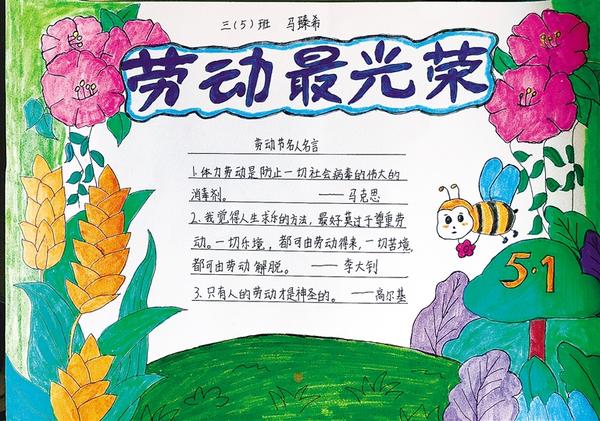 三（5）班 马臻希
劳动最光荣
劳动节名人名言
1.体力劳动是防止一切社会病毒的伟大的
消毒剂。 ——马克思
2.我觉得人生求乐的方法，最好莫过于尊重劳
动。一切乐境，都可由劳动得来，一切苦境，
都可由劳动解脱。 ——李大钊
3.只有人的劳动才是神圣的。——高尔基
5·1